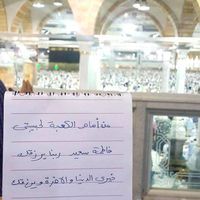 من أمام الكعبة لحبيبتي
فاطمة سعيد ربنا يرزقك
خيري الدنيا والآخرة ويرزقك